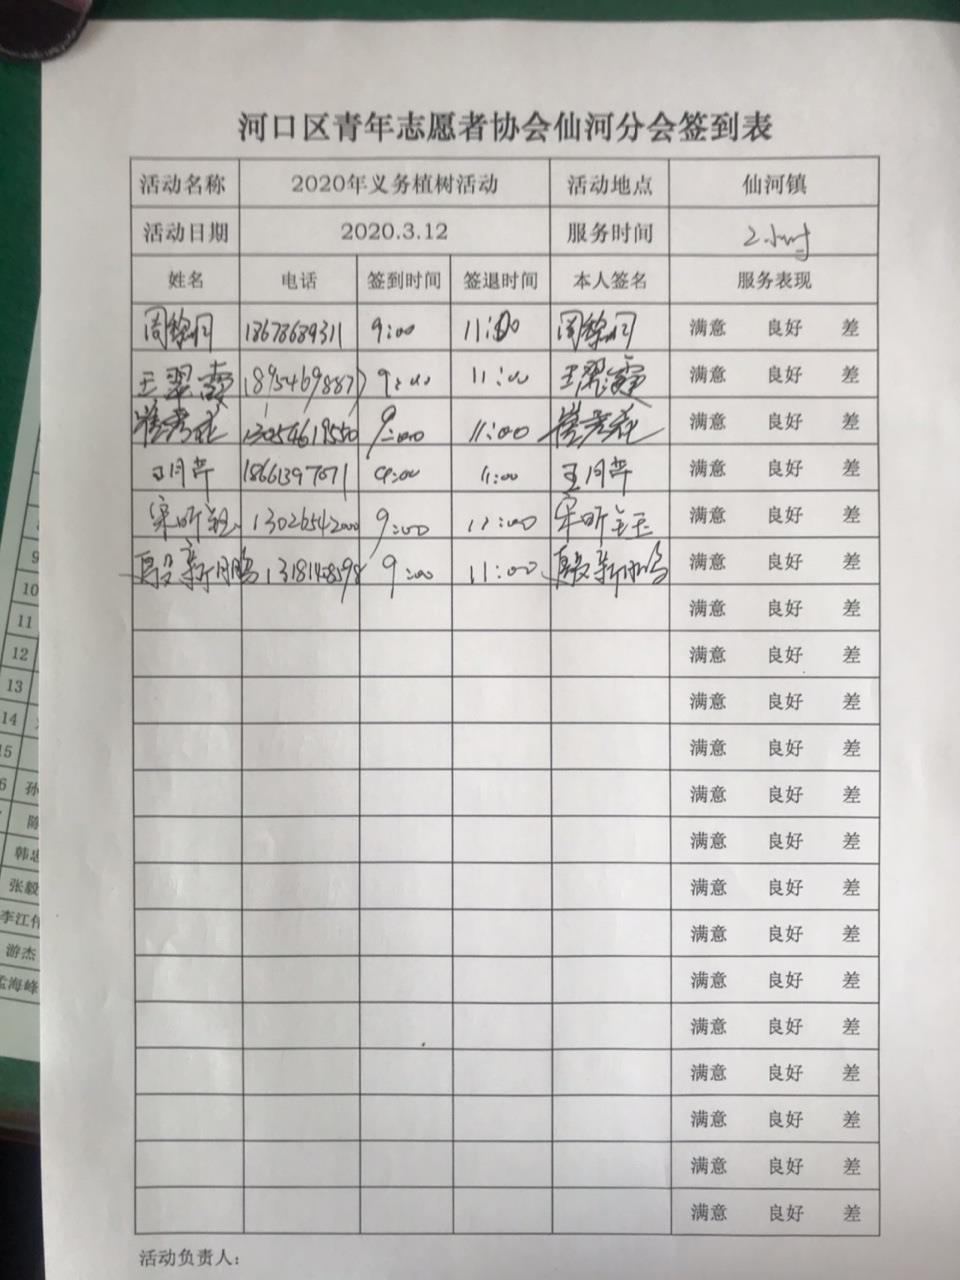 河口区青年志愿者协会仙河分会签到表
活动名称 2020年义务植树活动 活动地点 仙河镇
活动日期 2020.3.12 服务时间 2小时
姓名 电话 签到时间 签退时间 本人签名 服务表现
18678689311 9:00 11:00 满意 良好 差
王翠霞 18954698877 9:00 11:00 王翠霞 满意 良好 差
9:00 11:00 满意 良好 差
王月芹 18661397071 9:00 11:00 王月芹 满意 良好 差
宋昕钰 13026542000 9:00 11:00 宋昕钰 满意 良好 差
殷新鹏 9:00 11:00 殷新鹏 满意 良好 差
满意 良好 差
满意 良好 差
满意 良好 差
满意 良好 差
满意 良好 差
满意 良好 差
满意 良好 差
满意 良好 差
满意 良好 差
满意 良好 差
满意 良好 差
满意 良好 差
满意 良好 差
满意 良好 差
活动负责人：
9
10
11
12
13
14
15
6 孙
陈
韩忠
张毅
李江伟
游杰
孟海峰